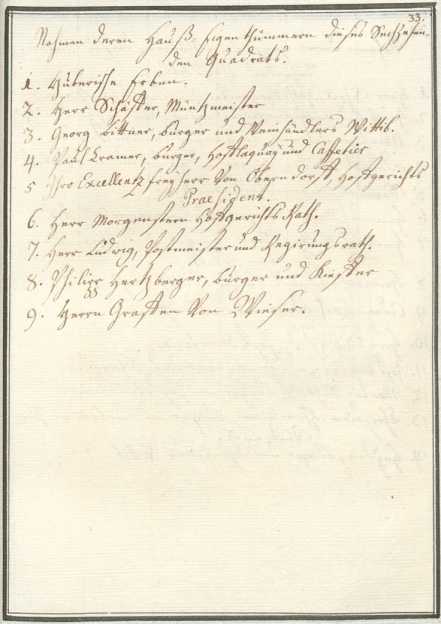 33.
Nahmen deren Hauß Eigenthümmern dieses Sechzehen-
den Quadrats.
1. Huberische Erben.
2. Herr Schäffer, Müntzmeister
3. Georg Bittner, burger und Weinhändlers Wittib.
4. Paul Cramer, burger, Hofflaquay und Caffetier
5 Ihro Excellentz freyherr von Oberndorff, Hoffgerichts
Praesident.
6. Herr Morgenstern Hoffgerichts Rath.
7. Herr Ludwig, Postmeister und Regirungsrath.
8. Philipp Hertzberger, burger und Kieffer
9. Herrn Graffen von Wieser.